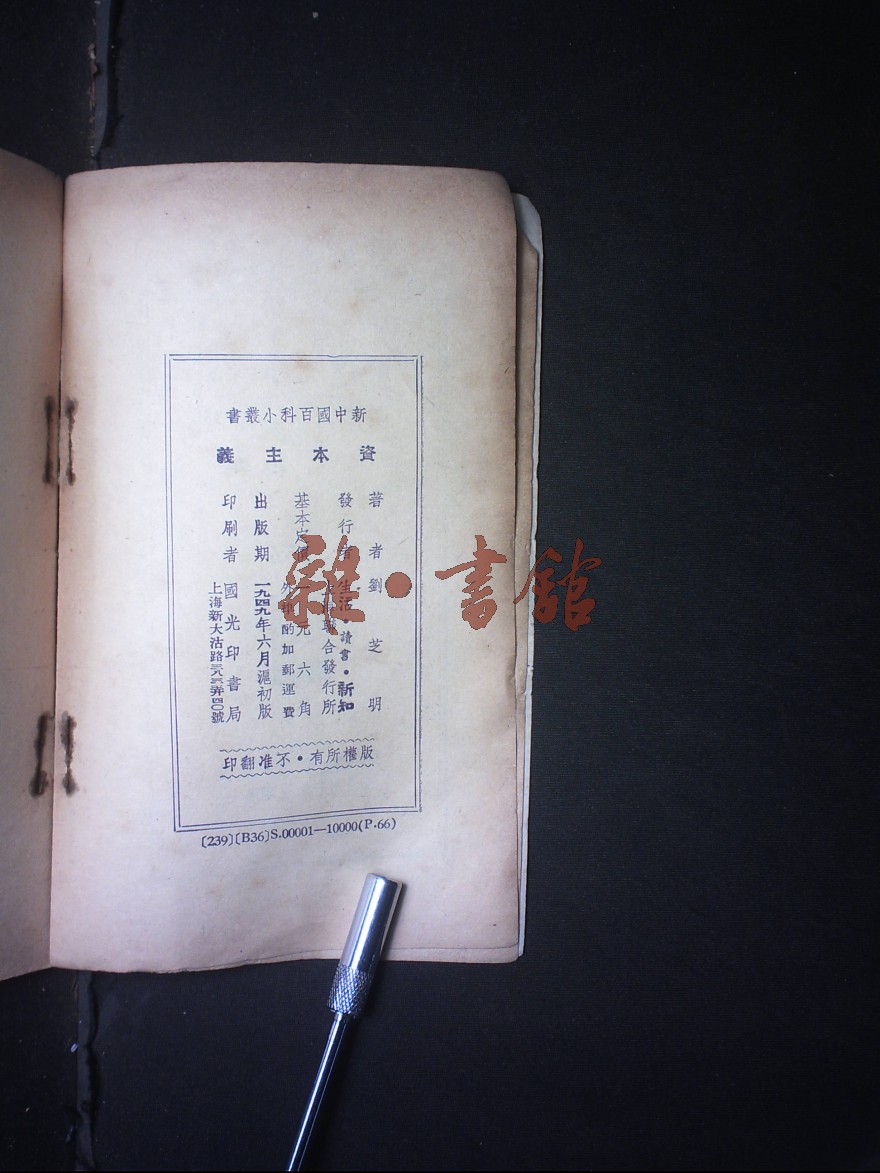 新中國百科小叢書
資本主義
著者 劉芝明
發行者 生活·讀書·新知
上海聯合發行所
基本定價 一元六角
外埠酌加郵運費
出版期 一九四九年六月滬初版
印刷者 國光印書局
上海新大沽路
號
版權所有·不准翻印
〔239〕〔B36〕S.00001—10000(P.66)
雜·書館